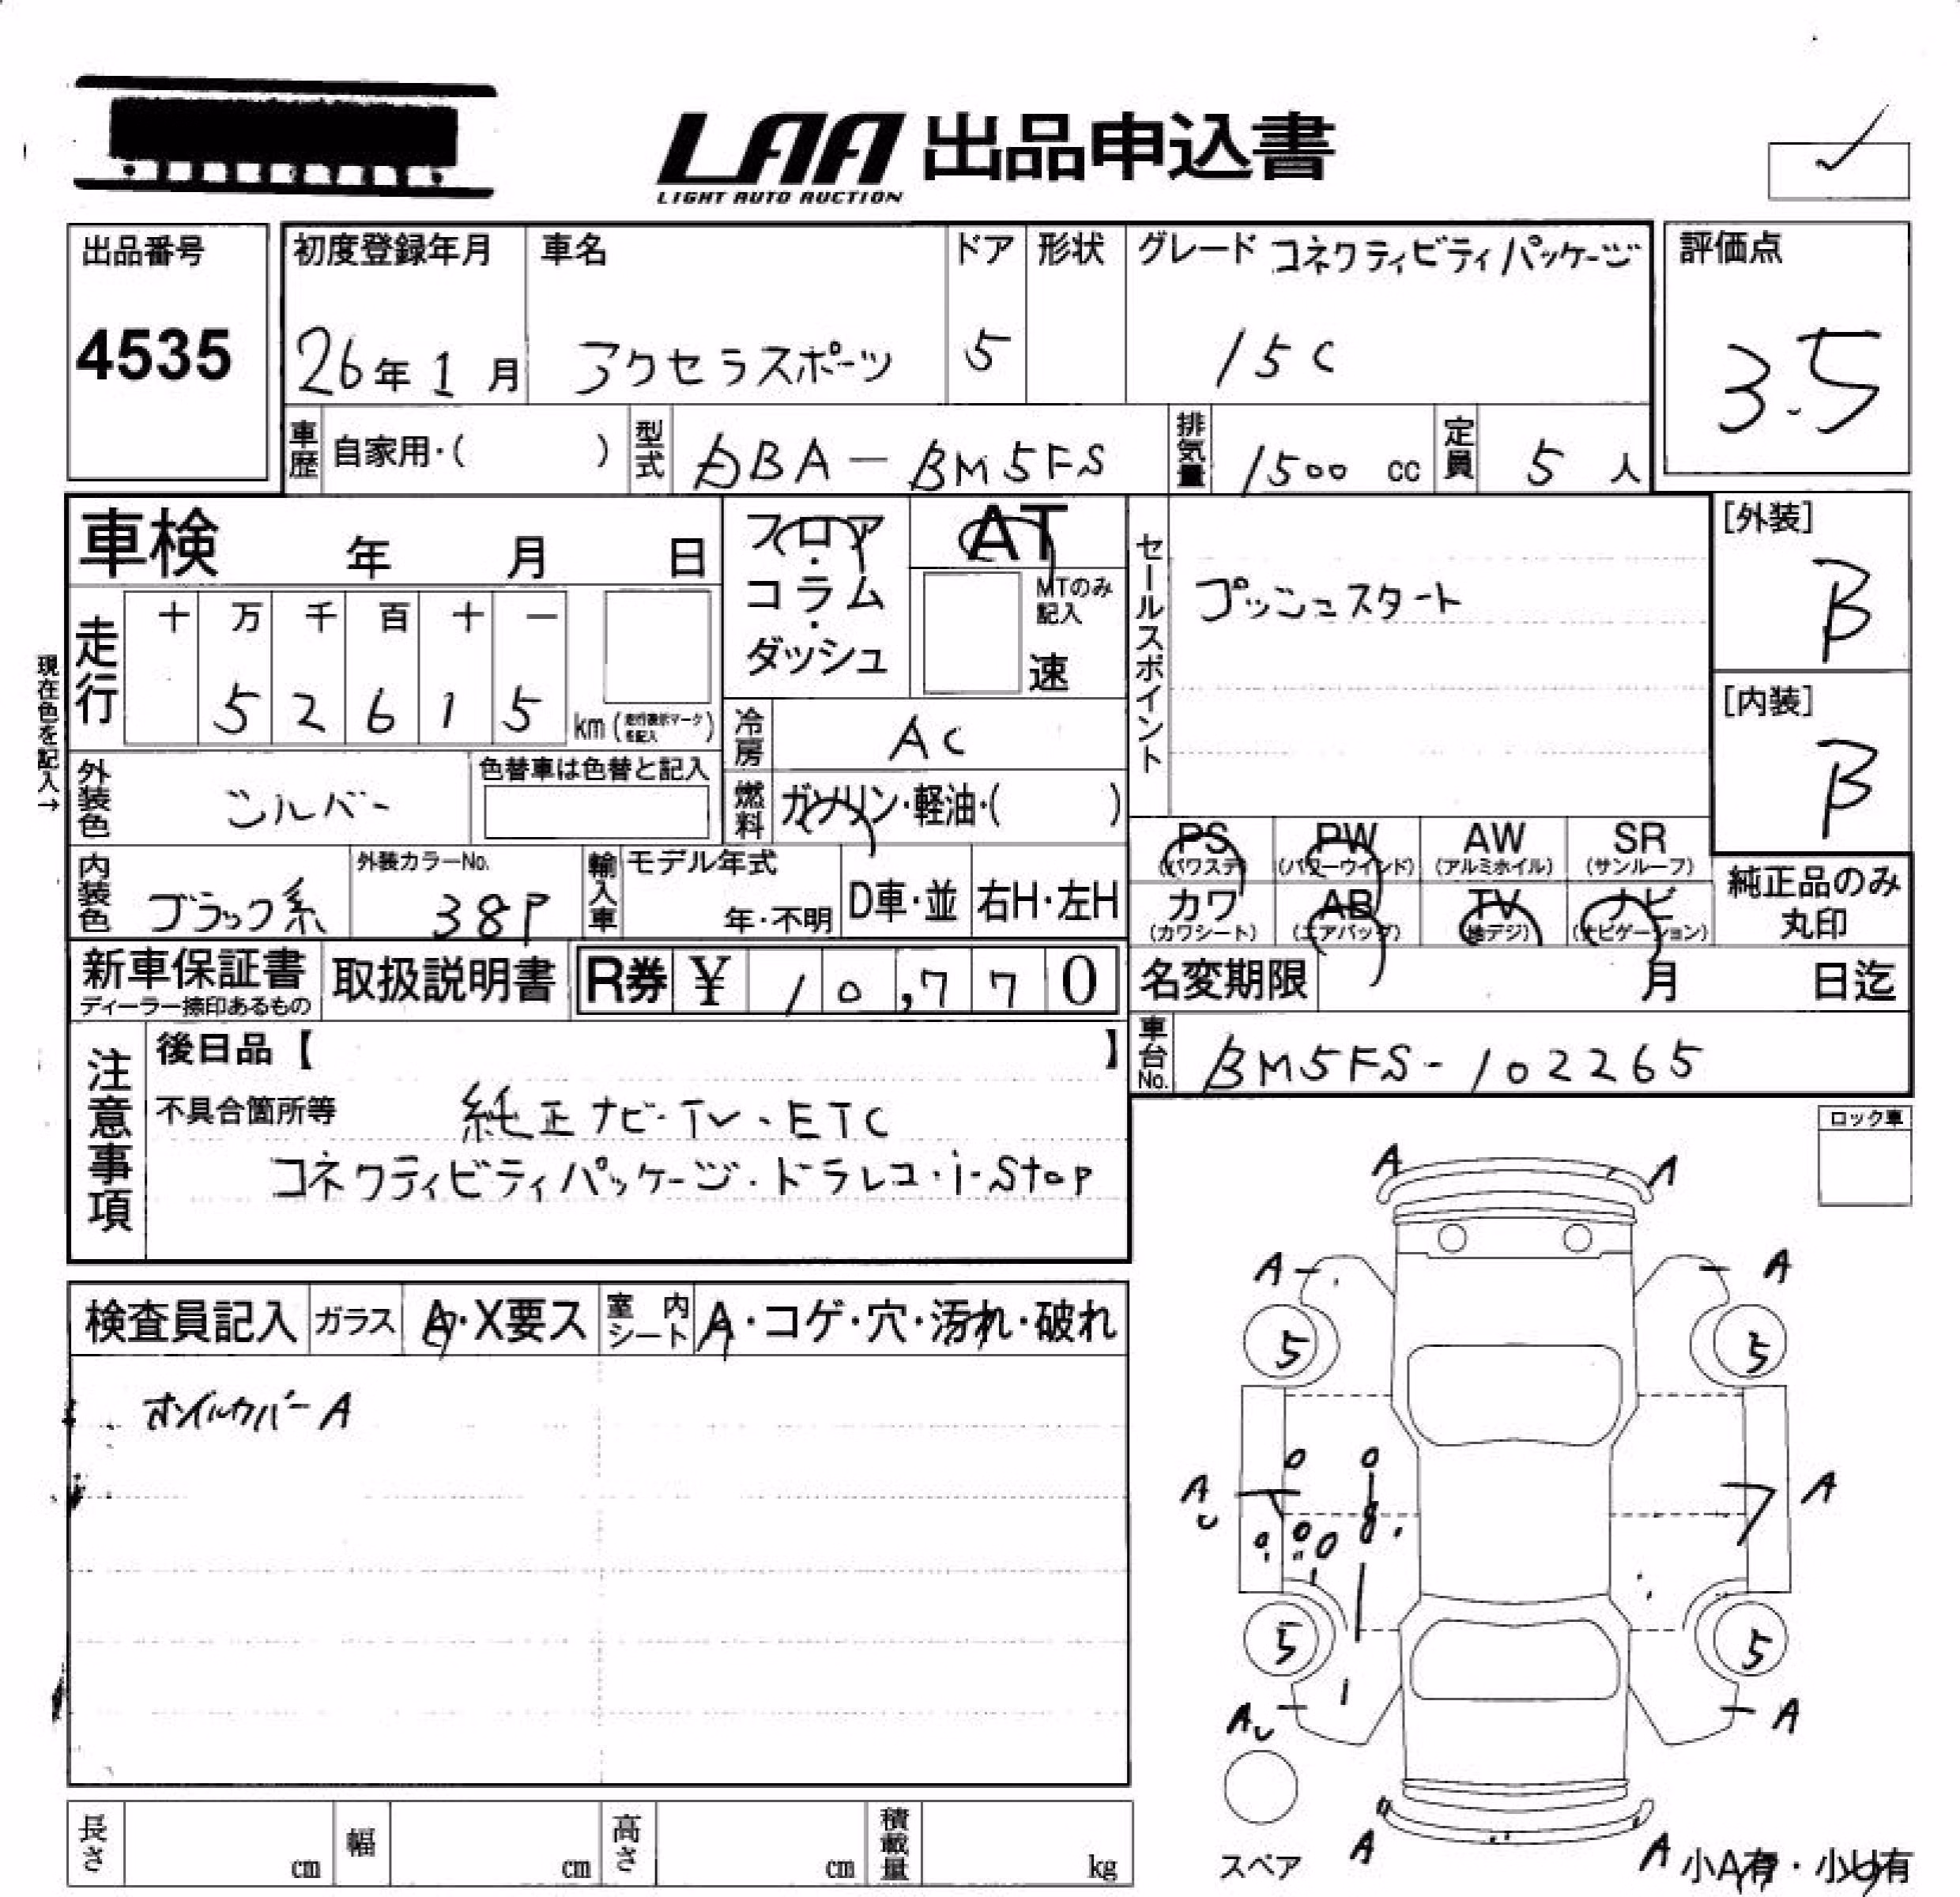 LAA 出品申込書
LIGHT AUTO AUCTION
出品番号
4535
初度登録年月
26年 1月
車名
アクセラスポーツ
ドア
5
形状
グレード コネクティビティパッケージ
15C
評価点
3.5
車歴 自家用・( )
型式 DBA-BM5FS
排気量 1500 cc
定員 5 人
車検 年 月 日
フロア・コラム・ダッシュ
AT
MTのみ記入
速
セールスポイント
プッシュスタート
[外装]
B
[内装]
B
現在色を記入→
走行
十 万 千 百 十 一
5 2 6 1 5
km (走行表示マークを記入)
冷房 AC
外装色 シルバー
色替車は色替と記入
燃料 ガソリン・軽油・( )
内装色 ブラック系
外装カラーNo.
38P
輸入車 モデル年式
年・不明
D車・並
右H・左H
PS (パワステ)
PW (パワーウインド)
AW (アルミホイル)
SR (サンルーフ)
カワ (カワシート)
AB (エアバッグ)
TV (地デジ)
ナビ (ナビゲーション)
純正品のみ
丸印
新車保証書
ディーラー捺印あるもの
取扱説明書
R券 ¥ 10,770
名変期限 月 日迄
車台No. BM5FS-102265
注意事項
後日品【 】
不具合箇所等
純正ナビ・TV・ETC
コネクティビティパッケージ・ドラレコ・i-Stop
ロック車
検査員記入
ガラス A・X要ス
室内シート A・コゲ・穴・汚れ・破れ
オイルカバーA
A A
A A
5 5
A A
U
5 5
AU A
スペア
A A
小A有・小U有
長さ cm
幅 cm
高さ cm
積載量 kg